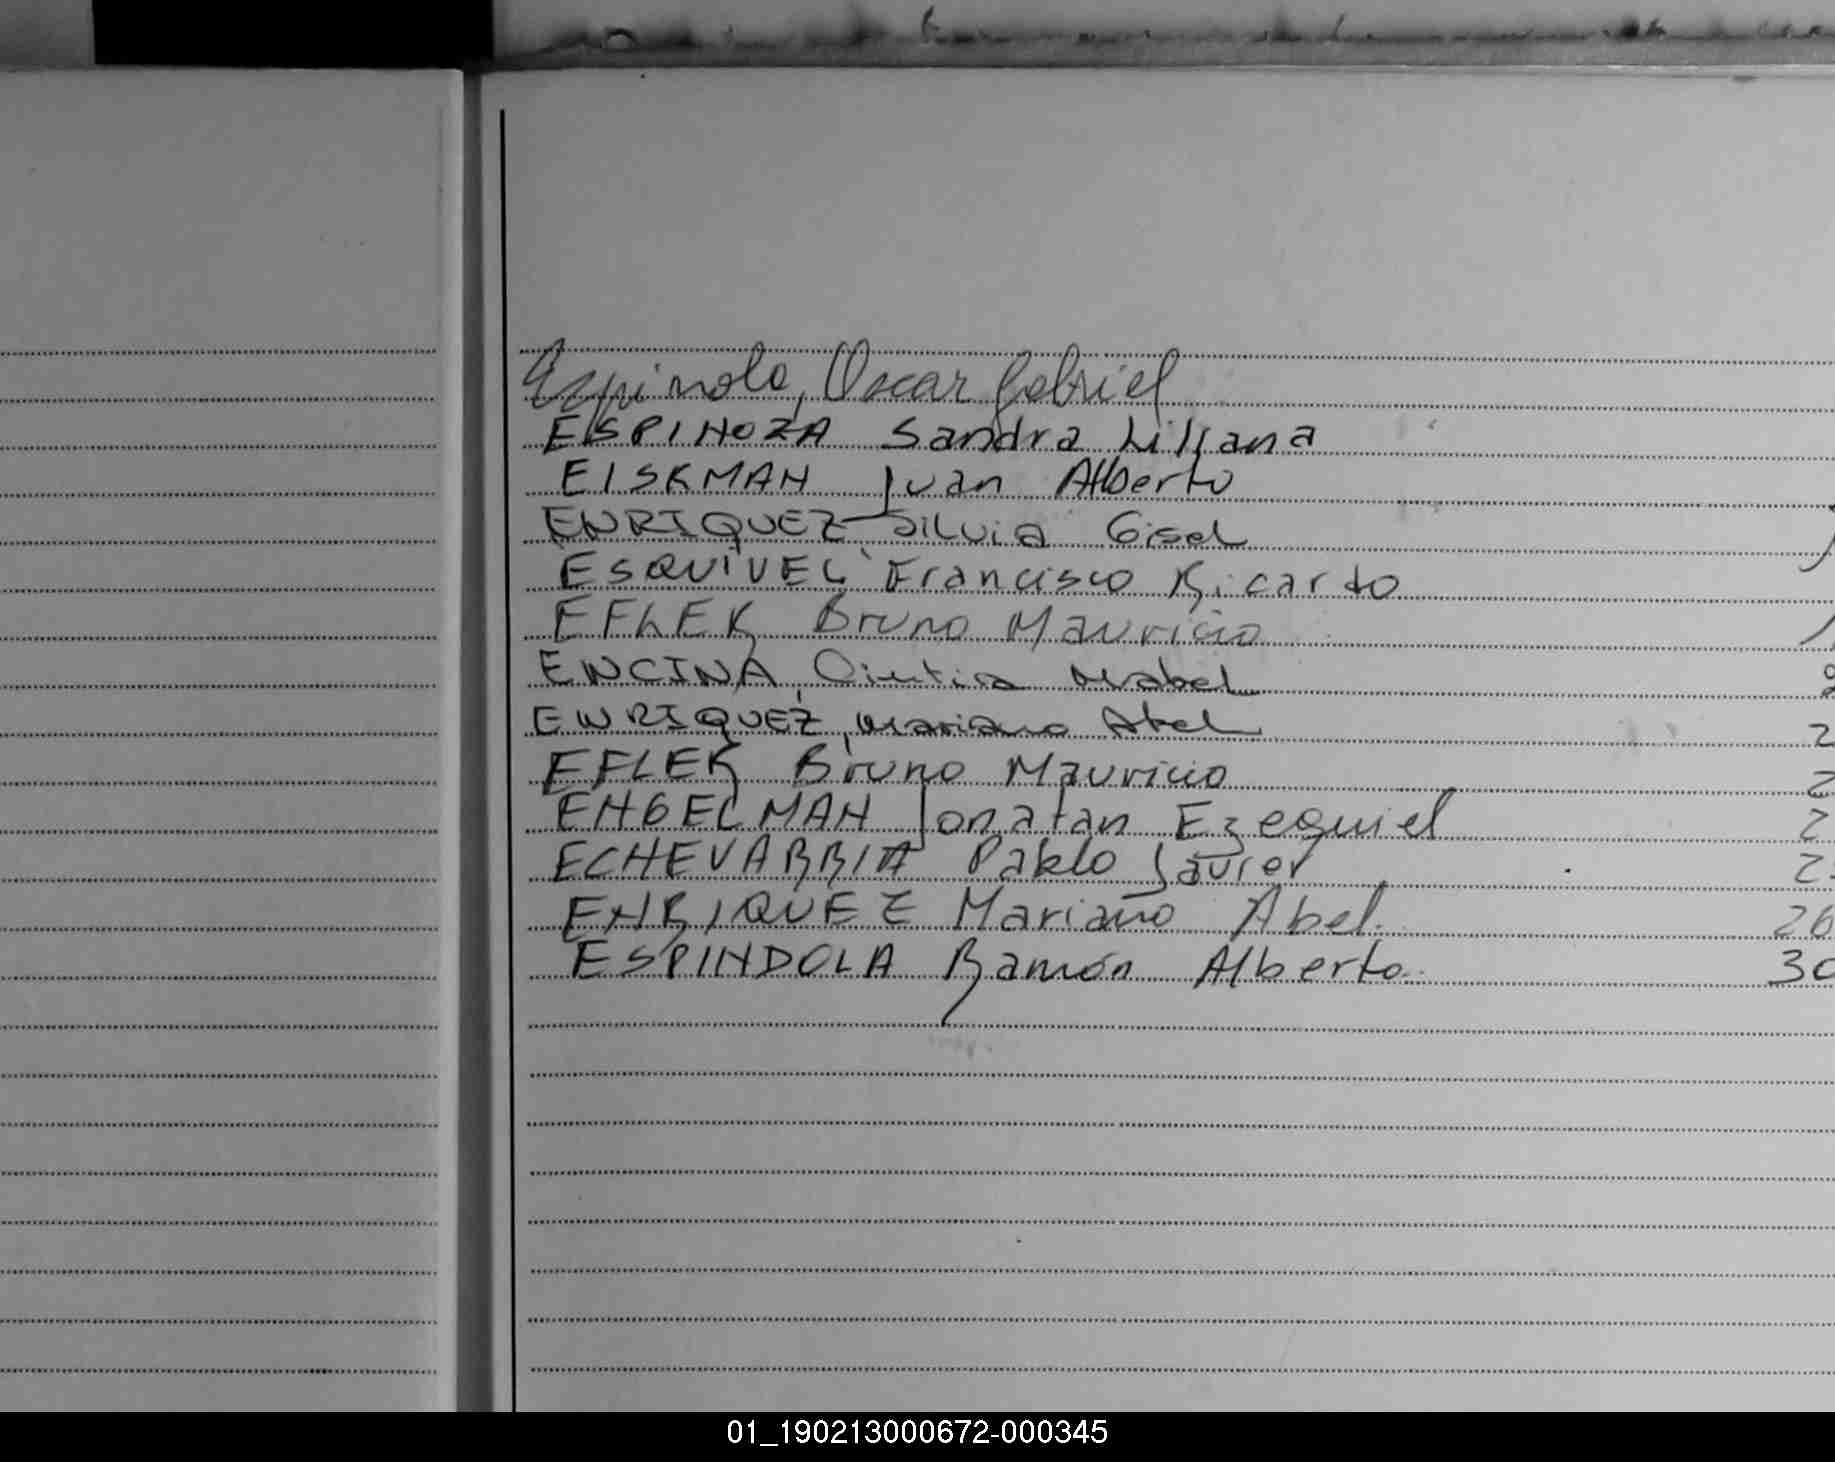 Espinola, Oscar Gabriel
ESPINOZA Sandra Liliana
EISKMAN Juan Alberto
ENRIQUEZ Silvia Gisel
ESQUIVEL Francisco Ricardo
EFLER Bruno Mauricio
ENCINA, Cintia Mabel
ENRIQUEZ, Mariano Abel
EFLER Bruno Mauricio
ENGELMAN Jonatan Ezequiel
ECHEVARRIA Pablo Javier
ENRIQUEZ Mariano Abel. 26
ESPINDOLA Ramón Alberto 30
01_190213000672-000345